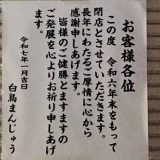 お客様各位
この度、令和六年末をもって
閉店とさせていただきます。
長年にわたるご厚情に心から
感謝申しあげます。
皆様のご健勝とますますの
ご発展を心よりお祈り申しあげ
ます。
令和七年一月吉日
白鳥まんじゅう